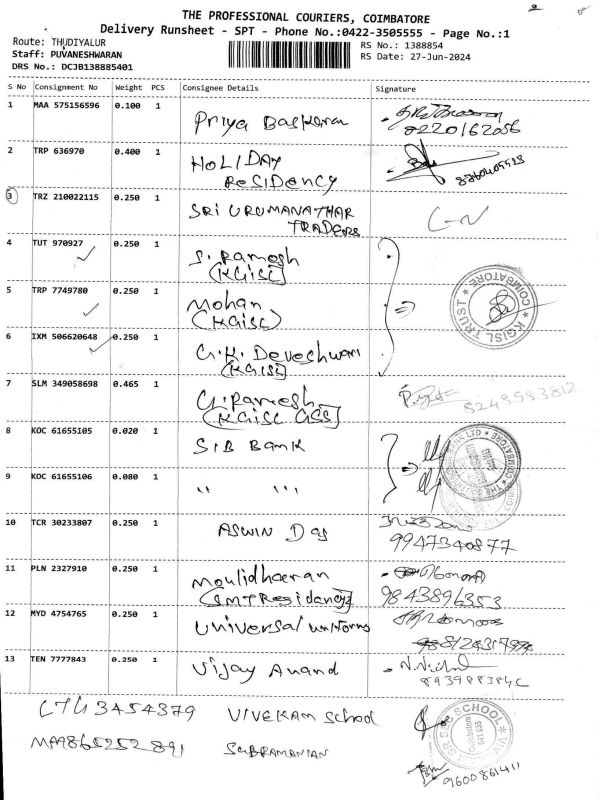 THE PROFESSIONAL COURIERS, COIMBATORE
Delivery Runsheet - SPT - Phone No.:0422-3505555 - Page No.:1
Route: THUDIYALUR
Staff: PUVANESHWARAN
DRS No.: DCJB138885401
RS No.: 1388854
RS Date: 27-Jun-2024
S No Consignment No Weight PCS Consignee Details Signature
1 MAA 575156596 0.100 1 Priya Baskaran
8220162056
2 TRP 636970 0.400 1 HOLIDAY
RESIDENCY
3 TRZ 210022115 0.250 1 SRI URUMANATHAR
TRADERS
4 TUT 970927 0.250 1 S. Ramesh
(KGISL)
5 TRP 7749780 0.250 1 Mohan
(KGISL)
KGISL TRUST * COIMBATORE *
6 IXM 506620648 0.250 1 G.K. Deveshwari
(KGISL)
7 SLM 349058698 0.465 1 G. Ramesh
(KGISL GSS)
8249583812
8 KOC 61655105 0.020 1 SIB Bank
9 KOC 61655106 0.080 1 " "
10 TCR 30233807 0.250 1 ASWIN Das
9947340877
11 PLN 2327910 0.250 1 Moulidharan
(SMT Residency)
9843896353
12 MYD 4754765 0.250 1 Universal uniforms
13 TEN 7777843 0.250 1 Vijay Anand
3454379 VIVEKAM School
MAA986525289 SUBRAMANIAN
SCHOOL
Coimbatore
641 035
9600861411